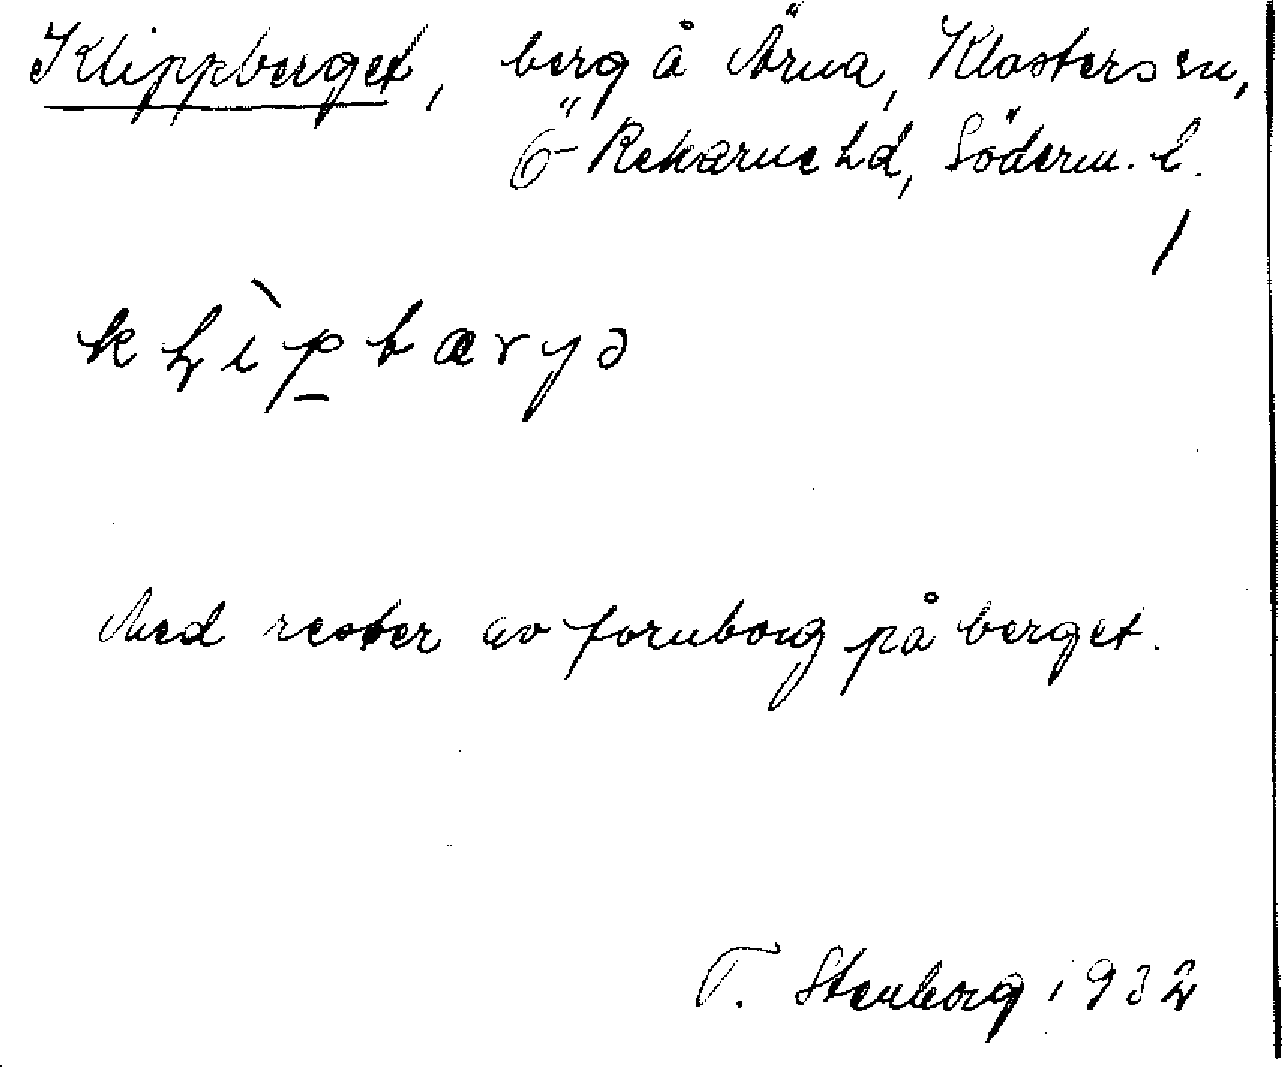 Klippberget, berg å Ärna, Klosters sn,
Ö Rekarne hd, Söderm. l.
kḷìp̱bærgə
Med rester av fornborg på berget.
T. Stenborg 1932